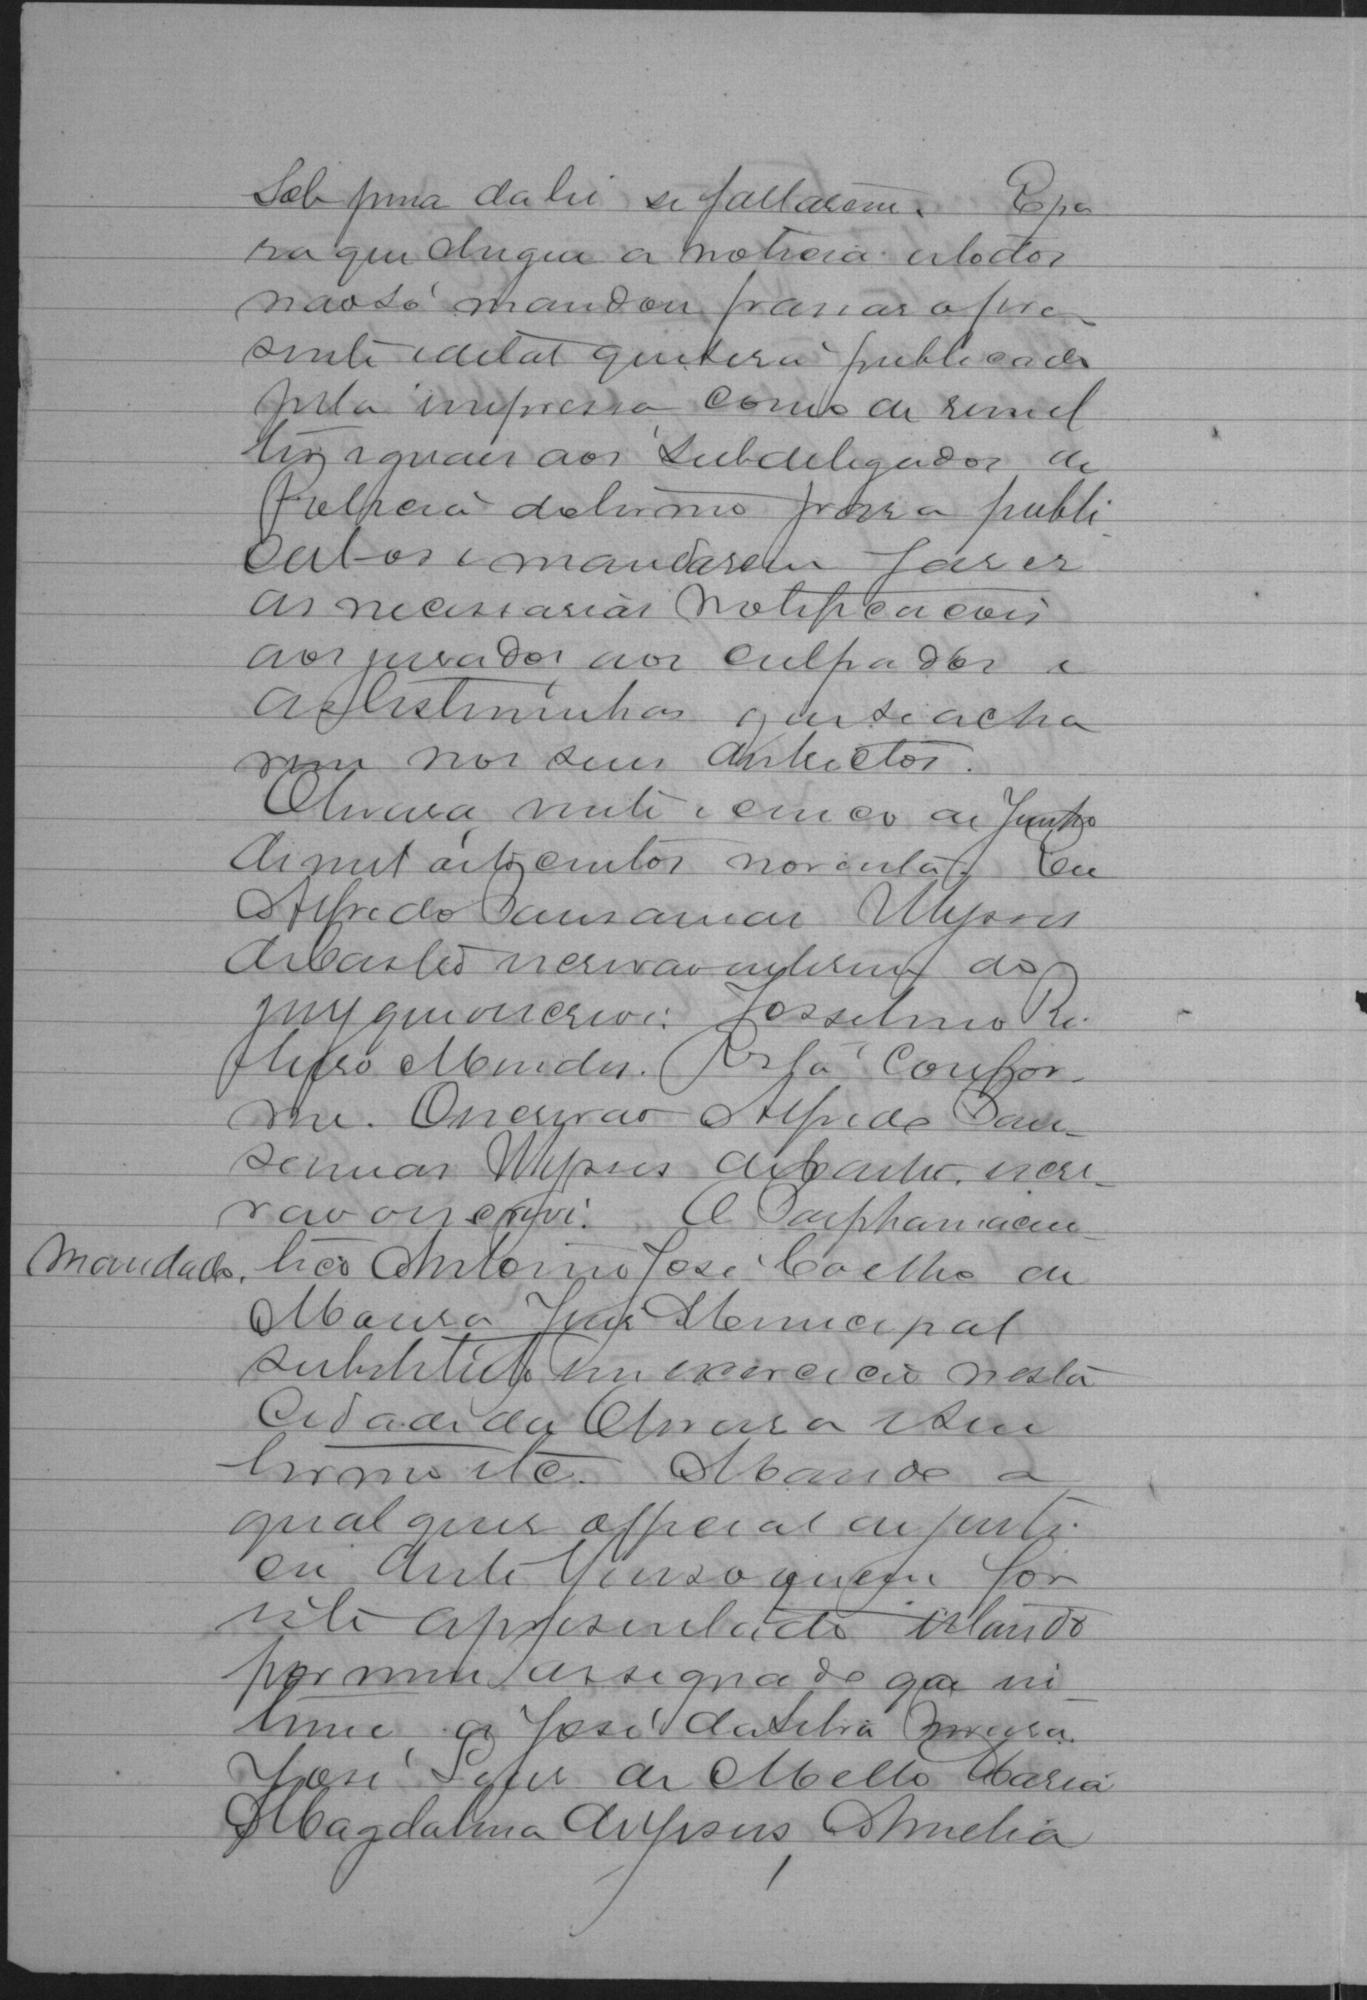 Sob pena da lei se faltarem. E pa
ra que chegue a noticia a todos
não só mandou passar o pre-
sente edital que será publicado
pela imprensa como de remet
ter iguaes aos Subdelegados de
Policia do termo para publi
cal-os e mandarem faser
as necessarias notificacois
aos jurados, aos culpados e
as testiminhas que se acha
rem nos seus districtos.
Oliveira vinte e cinco de Junho
de mil oitocentos noventa. Eu
Alfredo Ulysses
de Castro escrivão interino do
jury que o escrevi. Josselino Ri-
beiro Mendes. Está Confor-
me. O escrivão Alfredo
Ulysses de Castro, escri-
vão o escrevi. O Pharmaceu-
Mandado. tico Antonio José Coelho de
Moura Juis Municipal
substituto em exercicio nesta
Cidade da Oliveira e seu
termo etc. Mando a
qualquer official de justi-
ca deste Juiso a quem for
este apresentado estando
por mim assignado que in-
time a José da Silva
José de Mello Maria
Magdalena de Jesus, Amelia